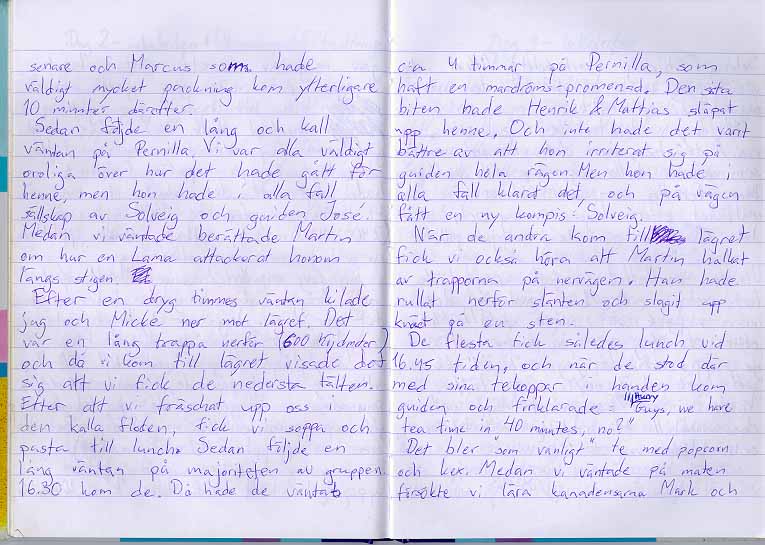 senare och Marcus som hade
väldigt mycket packning kom ytterligare
10 minuter därefter.
Sedan följde en lång och kall
väntan på Pernilla. Vi var alla väldigt
oroliga över hur det hade gått för
henne, men hon hade i alla fall
sällskap av Solveig och guiden José.
Medan vi väntade berättade Martin
om hur en Lama attackerat honom
längs stigen.
Efter en dryg timmes väntan kilade
jag och Micke ner mot lägret. Det
var en lång trappa nerför (600 höjdmeter)
och då vi kom till lägret visade det
sig att vi fick de nedersta tälten.
Efter att vi fräschat upp oss i
den kalla floden, fick vi soppa och
pasta till lunch. Sedan följde en
lång väntan på majoriteten av gruppen.
16.30 kom de. Då hade de väntat
c:a 4 timmar på Pernilla, som
haft en mardröms-promenad. Den sista
biten hade Henrik & Mattias släpat
upp henne. Och inte hade det varit
bättre av att hon irriterat sig på
guiden hela vägen. Men hon hade i
alla fall klarat det, och på vägen
fått en ny kompis: Solveig.
När de andra kom till lägret
fick vi också höra att Martin halkat
av trapporna på nervägen. Han hade
rullat nerför slänten och slagit upp
knäet på en sten.
De flesta fick således lunch vid
16.45 tiden, och när de stod där
med sina tekoppar i handen kom
guiden och förklarade: "Guys, we have
tea time in 40 minutes, no?"
Det blev "som vanligt" te med popcorn
och kex. Medan vi väntade på maten
försökte vi lära kanadensarna Mark och